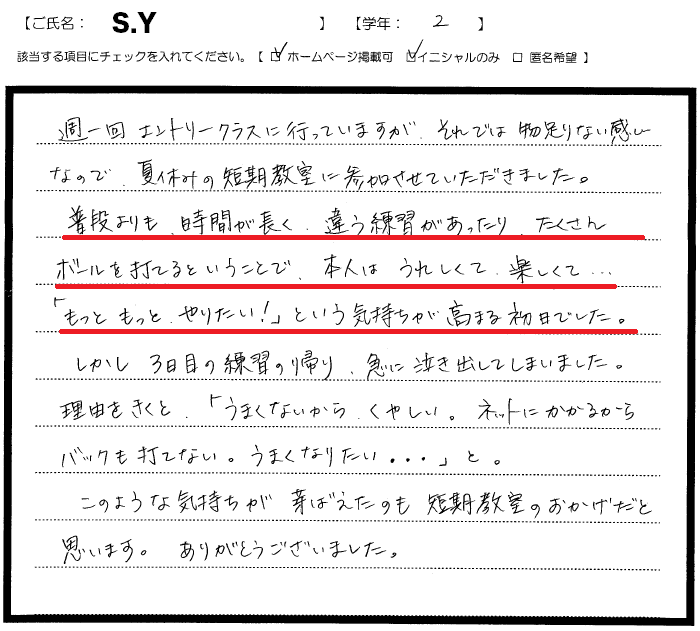 【ご氏名： S.Y 】 【学年： 2 】
該当する項目にチェックを入れてください。【 ☑ ホームページ掲載可 ☑ イニシャルのみ □ 匿名希望 】
週一回 エントリークラスに行っていますが、それでは 物足りない感じ
なので、夏休みの短期教室に参加させていただきました。
普段よりも、時間が長く、違う練習があったり、たくさん
ボールを打てるということで、本人は うれしくて、楽しくて…
「もっと もっと、やりたい！」という気持ちが 高まる初日でした。
しかし 3日目の練習の帰り、急に泣き出してしまいました。
理由をきくと、「うまくないから、くやしい。ネットにかかるから
バックも打てない。うまくなりたい・・・」と。
このような気持ちが 芽ばえたのも 短期教室のおかげだと
思います。 ありがとうございました。